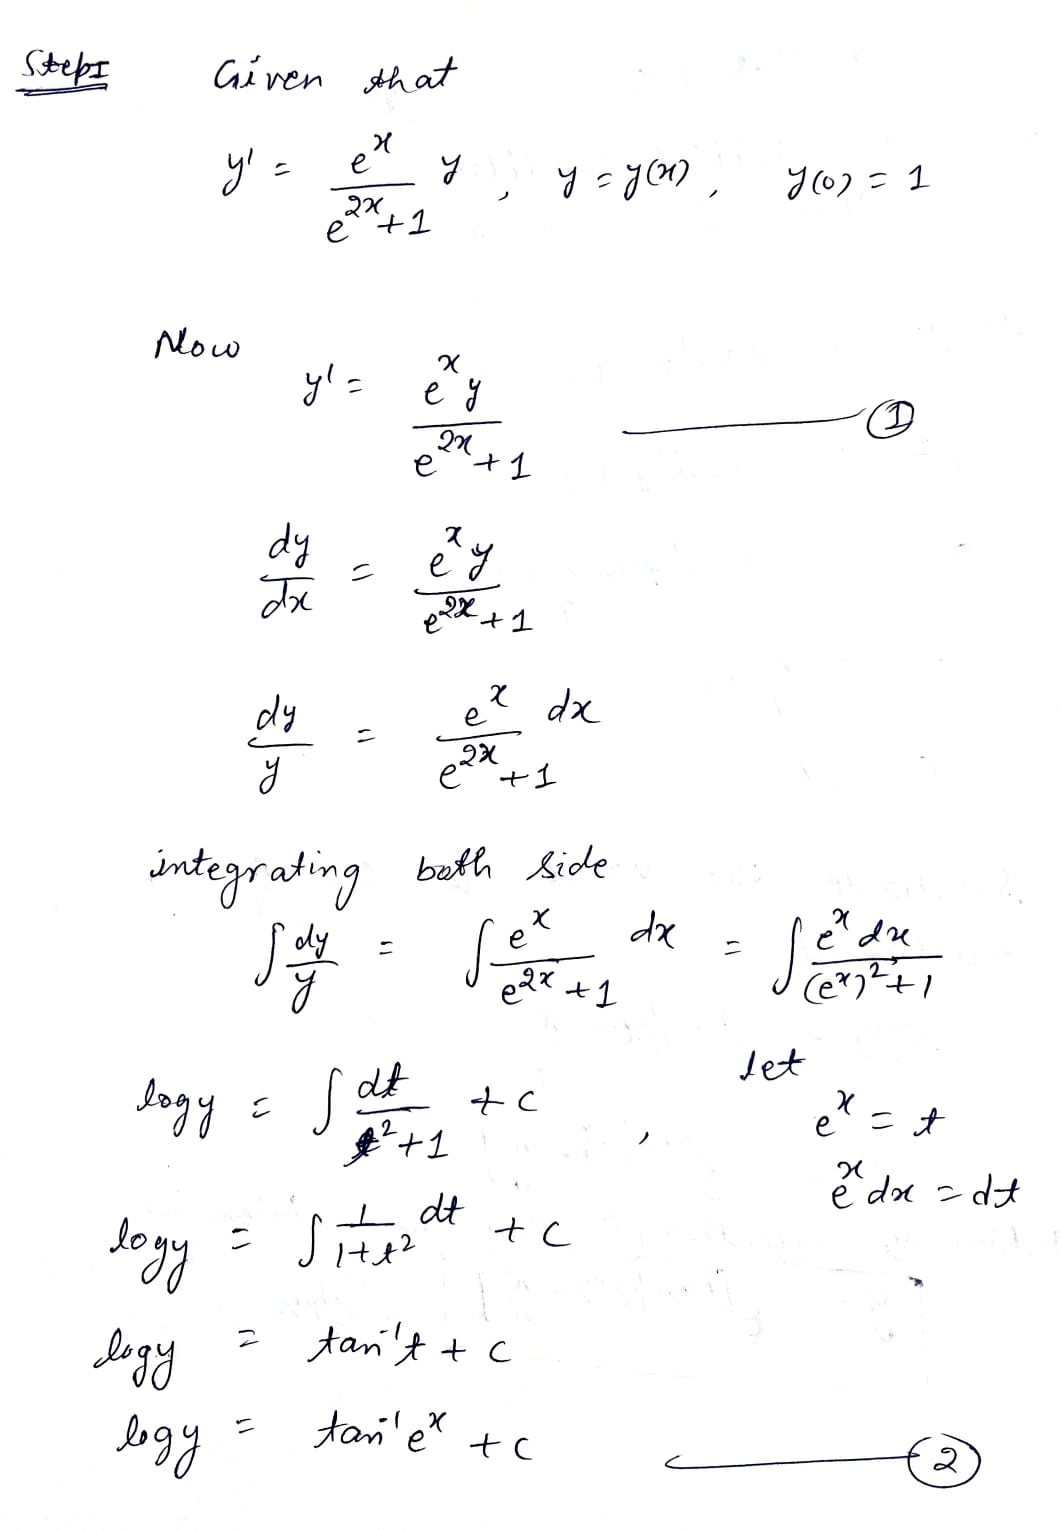 Step I Given that
y' = e^x / (e^{2x}+1) y , y = y(x) , y(0) = 1
Now
y' = e^x y / (e^{2x}+1) ——— ①
dy/dx = e^x y / (e^{2x}+1)
dy/y = e^x / (e^{2x}+1) dx
integrating both side
∫ dy/y = ∫ e^x / (e^{2x}+1) dx = ∫ e^x dx / ((e^x)^2+1)
logy = ∫ dt / (t^2+1) + c , let
e^x = t
e^x dx = dt
logy = ∫ 1/(1+t^2) dt + c
logy = tan^{-1} t + c
logy = tan^{-1} e^x + c ——— ②